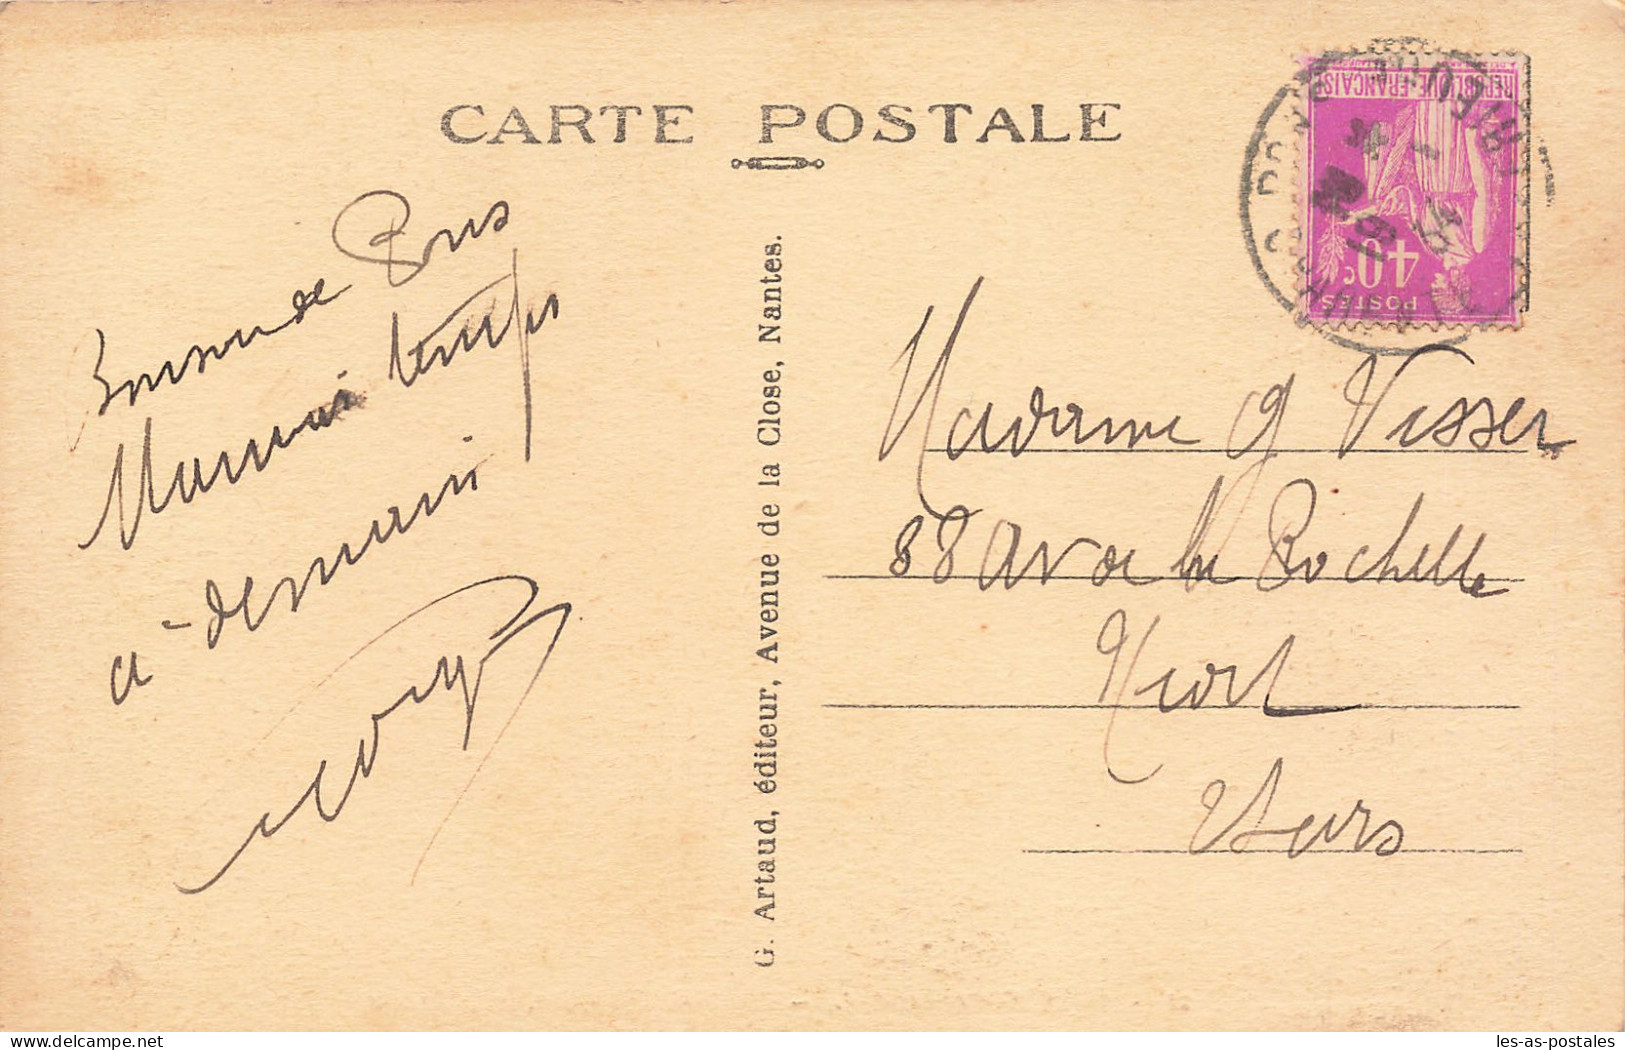 CARTE POSTALE
RÉPUBLIQUE FRANÇAISE
40c
POSTES
Pons
Mauvais temps
à demain
G. Artaud, éditeur, Avenue de la Close, Nantes.
Madame g Visser
88 Av de la Rochelle
Niort
2 Sevrs
delcampe.net
les-as-postales